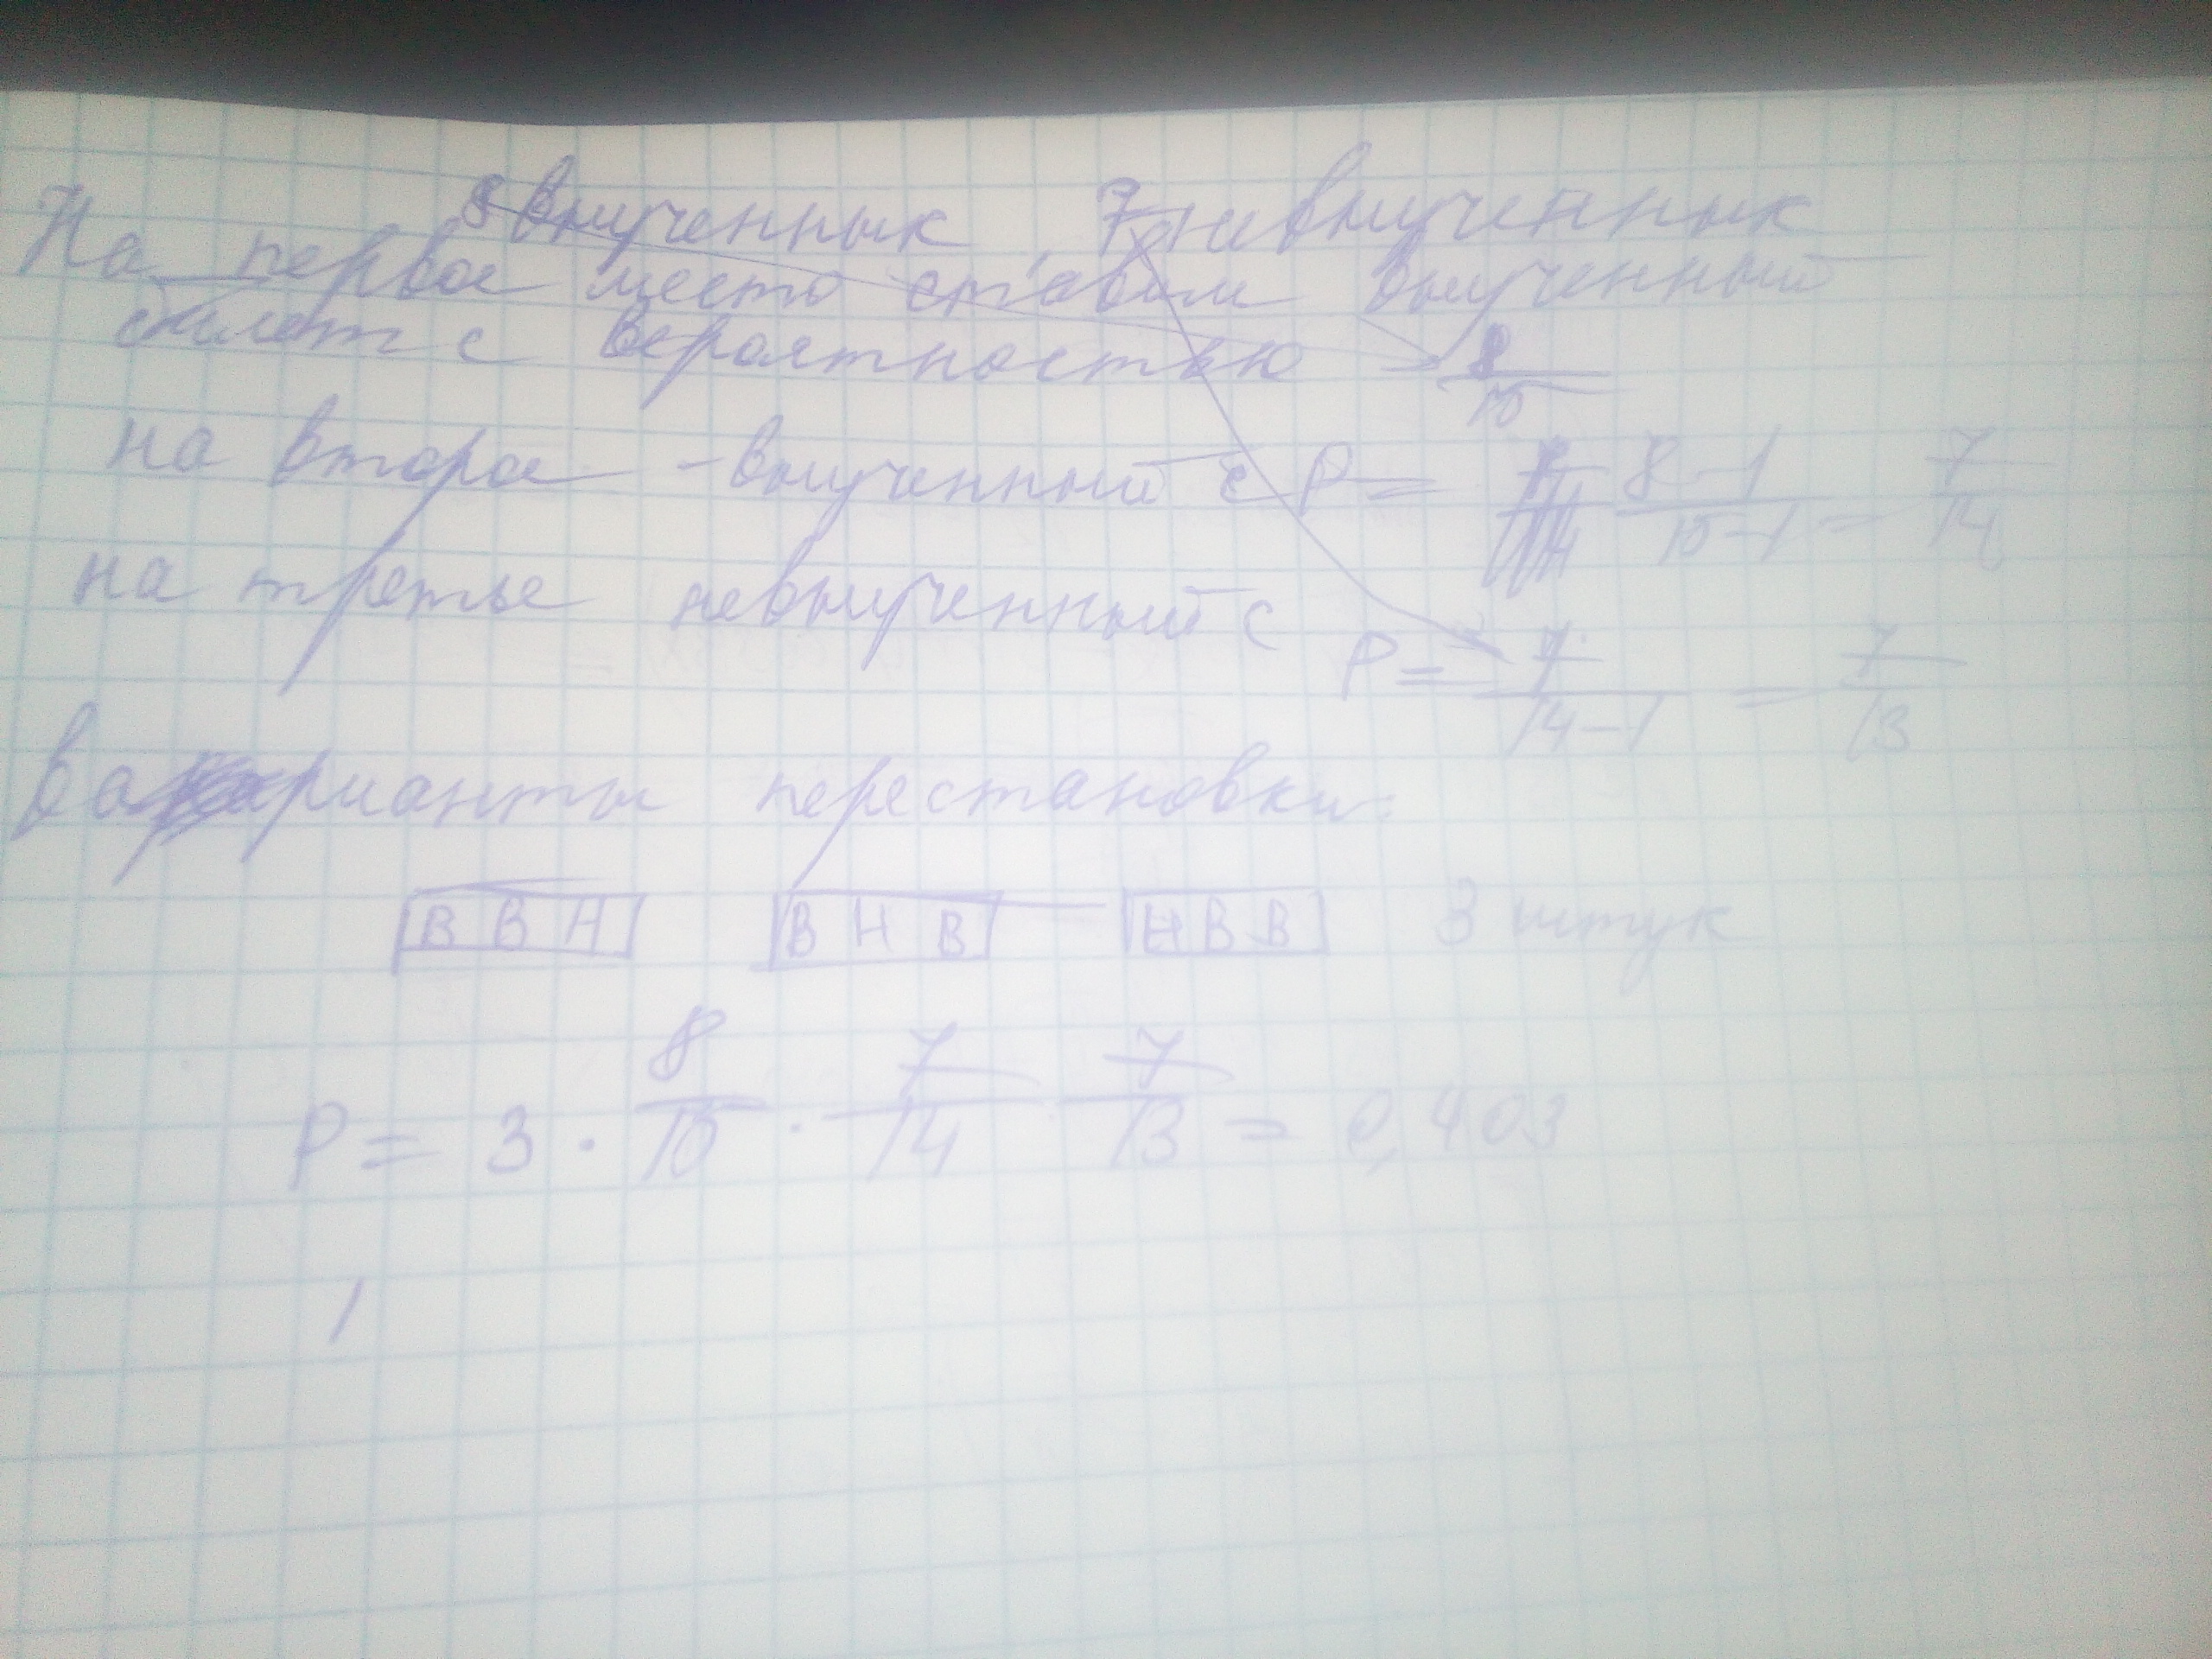 8 выученных, 7 невыученных
На первое место ставим выученный
билет с вероятностью 8/15
на второе - выученный с P = 8-1/15-1 = 7/14
на третье невыученный с P = 7/14-1 = 7/13
варианты перестановки:
В В Н В Н В Н В В 3 штук
P = 3 · 8/15 · 7/14 · 7/13 = 0,403